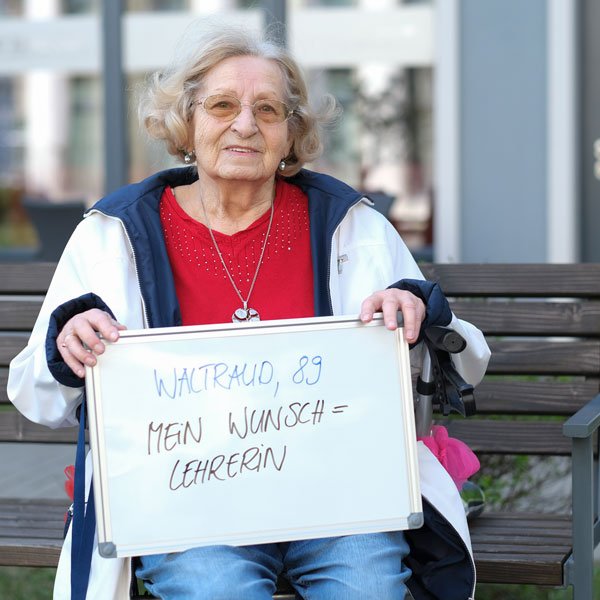 WALTRAUD, 89
MEIN WUNSCH =
LEHRERIN